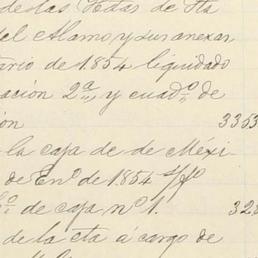 de las Hdas de Sta
del Alamo y sus anexas
ario de 1854 liquidado
ación 2ª, y cuadº de
ión 3353
la caja de de Méxi-
de Enº de 1854
de caja nº 1. 323
de la cta á cargo de